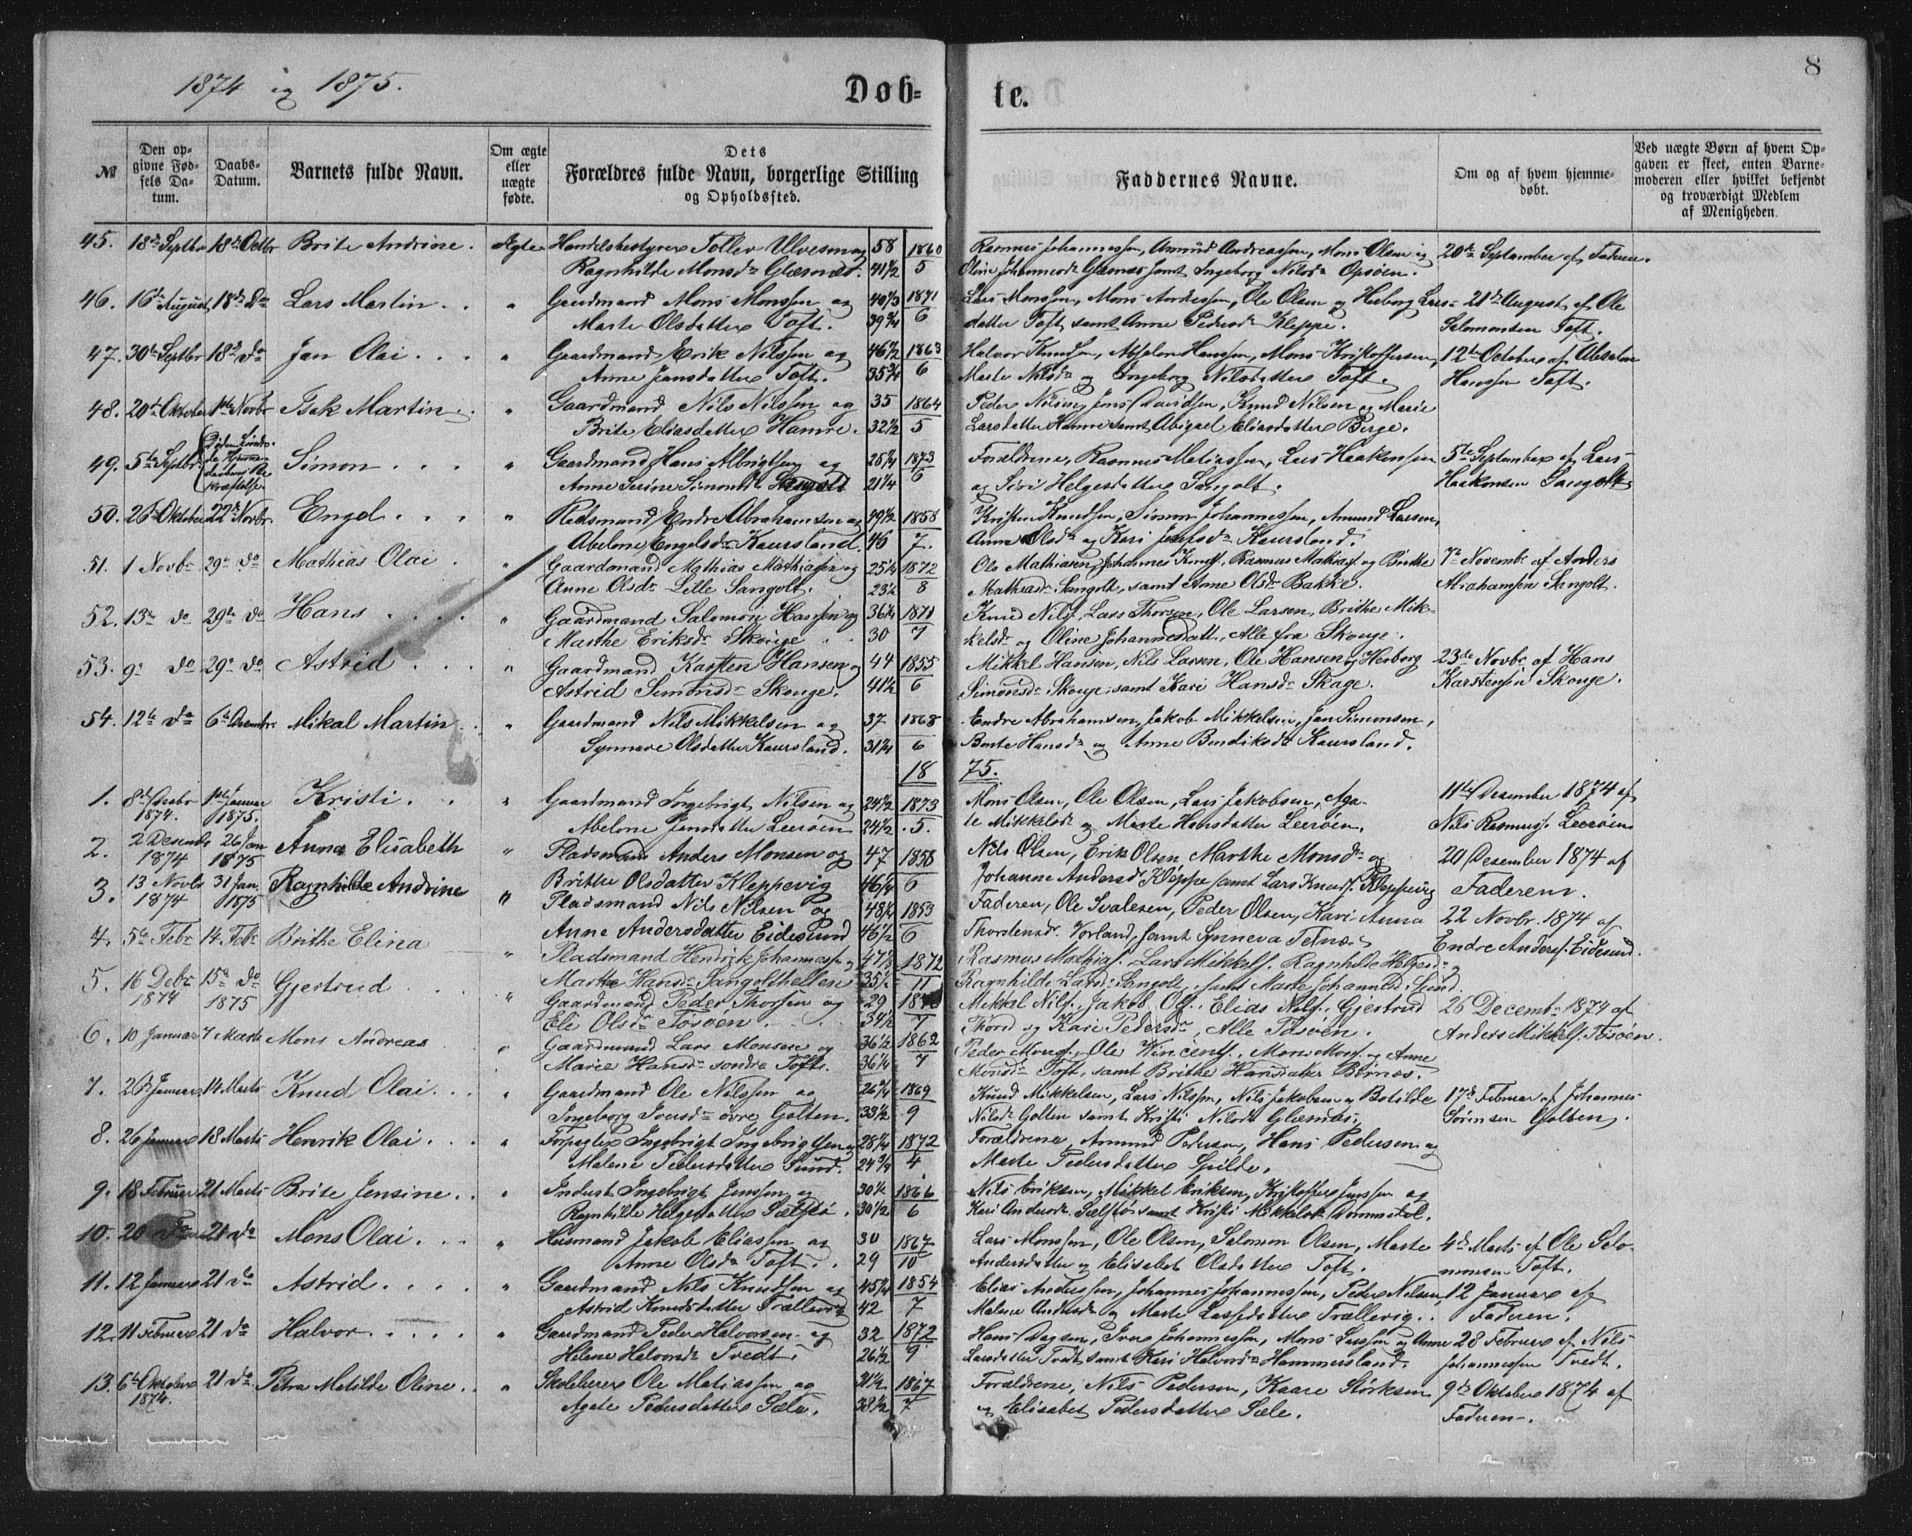 1874 og 1875.
Døb-
te.
8
№
Den op-
givne Fød-
sels Da-
tum.
Daabs-
Datum.
Barnets fulde Navn.
Om ægte
eller
uægte
fødte.
Dets
Forældres fulde Navn, borgerlige Stilling
og Opholdssted.
Faddernes Navne.
Om og af hvem hjemme-
døbt.
Ved uægte Børn af hvem Op-
gaven er skeet, enten Barne-
moderen eller hvilket bekjendt
og troværdigt Medlem
af Menigheden.
45. 18de Septbr 18de Octbr Brite Andrine. Ægte Handelsbestyrer Tollev Ulvesen og 58 1860 Rasmus Johannessen, Amund Andreassen, Mons Olsen og 20de September af Faderen.
Ragnhilde Monsdr Glæsnæs. 41½ 5 Oline Johannesdr Glæsnæs samt Ingeborg Nilsdr Opsøen.
46. 16de August 18de Do Lars Martin " Gaardmand Mons Monssen og 1871 Lars Monssen, Mons Andersen, Ole Olsen og Herborg Lars- 21de August af Ole
Marte Olsdatter Toft. 39¾ 6 datter Toft samt Anne Pedersdr Kleppe. Salomonsen Toft.
47. 30te Septbr 18de do Jan Olai " Gaardmand Erik Nilssen og 46½ 1863 Halvor Knudsen, Absalon Hanssen, Mons Kristoffersen, 12te October af Absalon
Anne Jansdatter Toft. 35¾ 6 Marte Nilsdr og Ingeborg Nilsdatter Toft. Hanssen Toft.
48. 20de Oktober 1ste Novbr Isak Martin " Gaardmand Nils Nilssen og 35 1864 Peder Jens Davidsen, Knud Nilsen og Marie
Brite Eliasdatter Hamre. 32½ 5 Larsdatter Hamre samt Abigael Eliasdatter Berge.
49. 5te Septbr Simon " Gaardmand Hans Albrigtsen og 28¼ 1873 Forældrene, Rasmus Matiassen, Lars Haakonsen 5te September af Lars
Anne Serine Simonsdr Sangolt 21¼ 6 og Siri Helgesdatter Sangolt. Haakonsen Sangolt
50. 26de Oktober 22de Novbr Engel " Endre Abrahamsen og 49½ 1858 Kristen Knudsen, Simon Johannessen, Amund Larsen,
Abelone Engelsdr Kaursland. 46 7. Anne Olsdr og Kari Jensdr Kaursland.
51. 1 Novbr 29de do Mathias Olai " Gaardmand Mathias Mathiasen og 25¼ 1872 Ole Mathiasen, Johannes Knuds. Rasmus Mathias. og Brithe 7de Novembr af Anders
Anne Olsdr Lille Sangolt. 23½ 8 Mathiasdr Sangolt, samt Anne Olsdr Bakke. Abrahamsen Sangolt.
52. 13de do 29de do Hans " Gaardmand Salomon Hansen og 36¼ 1871 Knud Nils. Lars Thorsen, Ole Larsen, Brithe Mik-
Marthe Eriksdr Skouge 30 7 kelsdr og Oline Johannesdatter, Alle fra Skouge.
53. 9de do 29de do Astrid " Gaardmand Karsten Hansen og 44 1855 Mikkel Hansen, Nils Larsen, Ole Hansen og Herborg 23de Novbr af Hans
Astrid Simonsdr Skouge. 41½ 6 Simonsdr Skouge, samt Kari Hansdr Skage. Karstensen Skouge.
54. 12te do 6te Decembr. Mikal Martin " Gaardmand Nils Mikkelsen og 37 1868 Endre Abrahamsen, Jakob Mikkelsen, Jan Simonsen,
Synnave Olsdatter Kaursland. 31¼ 6 Bente Hansdr og Anne Bendiksdr Kaursland.
18 75.
1. 8de Decbr 1ste Januar Kristi " Gaardmand Ingebrigt Nilsen og 24½ 1873 Mons Olsen, Ole Olsen, Lars Jakobsen, Aga- 11te Desember 1874 af
1874. 1875. Abelone Jansdatter Leerøen 24½ 5. te Mikkelsdr og Marte Hansdatter Leerøen. Nils Rasmus. Leerøen
2. 2 Desembr 26 Jan Anna Elisabeth " Pladsmand Anders Monsen og 47 1858 Nils Olsen, Erik Olsen, Marthe Monsdr og 20 Desember 1874 af
1874 1875 Brithe Olsdatter Kleppevig 46¼ 6 Johanne Andersdr Kleppe samt Lars Knuds. Kleppevig Faderen.
3. 13 Novbr 31 Jan. Ragnhilde Andrine " Pladsmand Nils Nilsen og 48½ 1853 Faderen, Ole Svalesen, Peder Olsen, Kari Anna 22 Novbr. 1874 af
1874 1875 Anne Andersdatter Eidesund 46½ 6 Thorstensdr Vorland, samt Synneva Telnæs Endre Anders. Eidesund.
4. 5te Febr 14 Febr Brithe Elina " Pladsmand Hendrik Johannessen og 1872 Rasmus Mathias. Lars Mikkels. Ragnhilde Helgesdr og
Marthe Hansdr Sangolthellen 35½ 11 Ragnhilde Larsdr Sangolt, samt Marte Johannesdr Spind.
5. 16 Debr 15de do Gjertrud " Gaardmand Peder Thorsen og 29 Mikkel Nils. Jakob Ols. Elias Nils. Gjertrud 26 Decembr 1874 af
1874 1875 Eli Olsdr Tøsøen 34½ 7 Thorsdr og Kari Pedersdr, Alle Tøsøen. Anders Mikkels. Tøsøen.
6. 10 Januar 7 Marts Mons Andreas " Gaardmand Lars Monsen og 36½ 1862 Peder Mons. Ole Vincents. Mons Mons. og Anne
Marie Hansdr søndre Toft. 36¼ 7 Monsdr Toft, samt Brithe Hansdatter Børnæs.
7. 26de Januar 14 Marts Knud Olai " Gaardmand Ole Nilssen og 26¾ 1869 Knud Mikkelsen, Lars Nilssen, Nils Jakobsen og Botilde 17de Februar af Johannes
Ingeborg Iversdr øvre Golten. 33½ 9 Nilsdr Golten samt Kristi Nilsdr Glæsnæs. Sørensen Golten.
8. 26 Januar 18 Marts Henrik Olai " Ingebrigt Ingebrigtsen og 28¼ 1872 Forældrene, Amund Pedersen, Hans Pedersen og
Malene Pedersdatter Sund. 24¾ 4 Marte Pedersdatter Spilde.
9. 18 Februar 21 Marts Brite Jensine " Inderst Ingebrigt Jenssen og 30½ 1866 Nils Eriksen, Mikkel Eriksen, Kristoffer Jenssen og
Ragnhilde Helgesdatter Sælsfør. 30½ 6 Kari Andersdr Sælsfør samt Kristi Mikkelsdr Dommedal.
10. 20 do 21 do Mons Olai " Huusmand Jakob Eliassen og 30 1867 Lars Monssen, Ole Olsen, Salomon Olsen, Marte 4de Marts af Ole Salo-
Anne Olsdr Toft. 29 10 Andersdatter og Elisabet Olsdatter Toft. monsen Toft.
11. 12 Januar 21 do Astrid " Gaardmand Nils Knudsen og 45¼ 1854 Elias Anderssen, Johannes Johannessen, Peder Nilsen, 12 Januar af
Astrid Knudsdatter Trællevig 42 7 Malene Andersdr og Marte Larsdatter Trællevig. Faderen.
12. 11 Februar 21 do Halvor " Gaardmand Peder Halvorsen og 32 1872 Hans Dagsen, Iver Johannessen, Mons Larssen og Anne 28 Februar af Nils
Helene Halvorsdr Tvedt. 26½ 9 Larsdatter Tvedt samt Kari Halvorsdr Hammersland. Johannessen Tvedt.
13. 6te Oktober 21 do Petra Matilde Oline " Skolelærer Ole Matiassen og 31½ 1867 Forældrene, Nils Pedersen, Kaare Størksen 9de Oktober 1874 af
1874. Agate Pedersdatter Sæle. 33½ 7 og Elisabet Pedersdatter Sæle. Faderen.